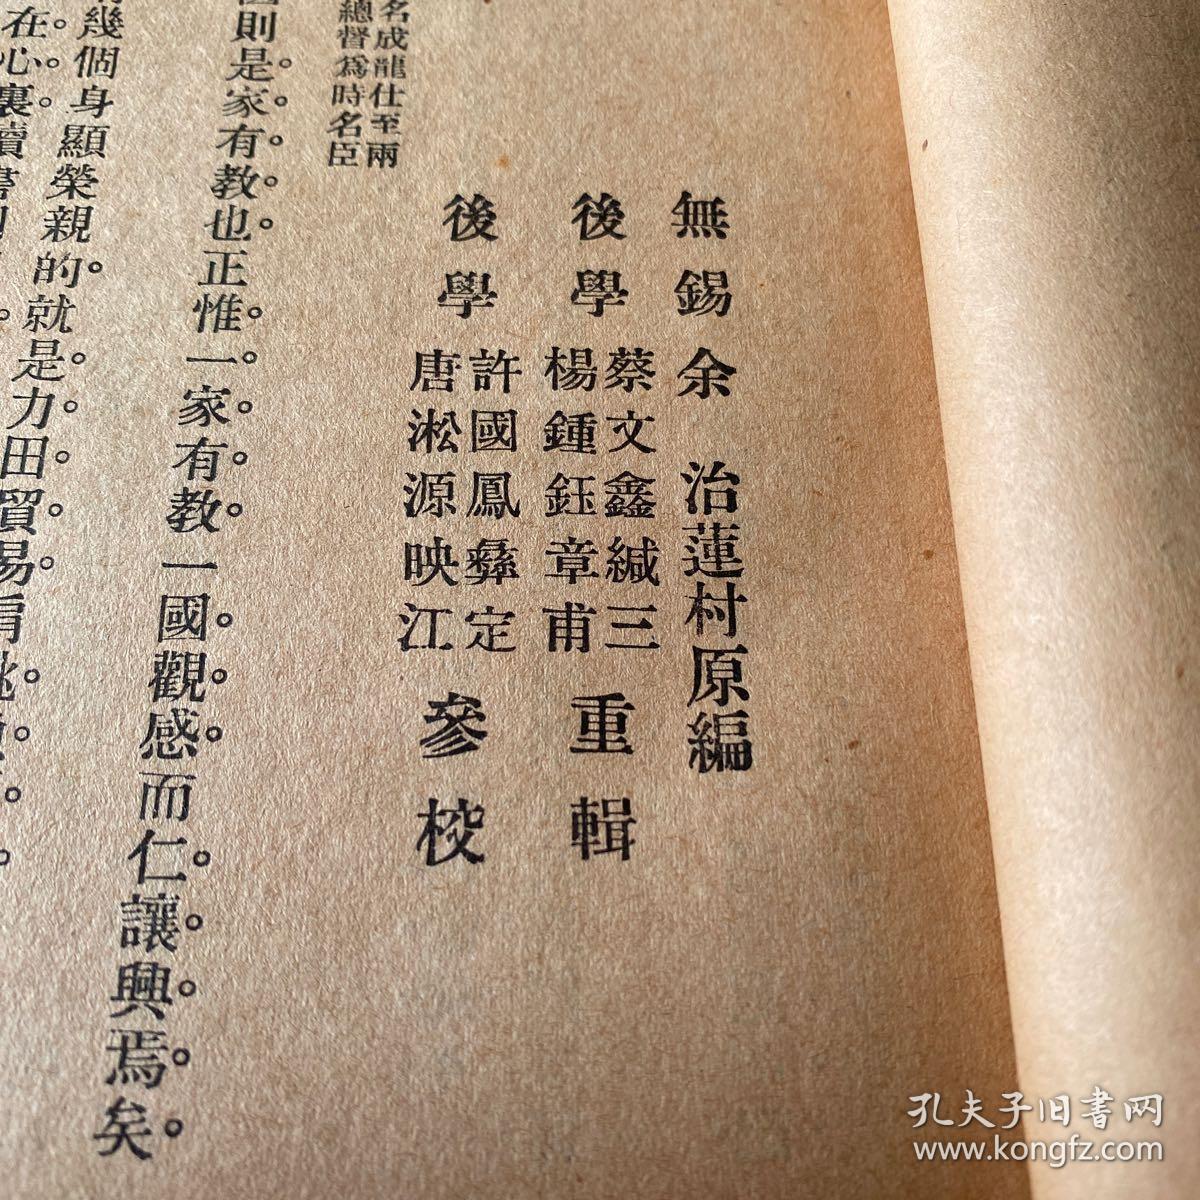 無錫余治蓮村原編
後學蔡文鑫緘三重輯
楊鍾鈺章甫
後學許國鳳彝定參校
唐淞源映江
名成龍仕至兩
總督爲時名臣
則是。家。有。教。也。正惟。一。家。有。教。一國。觀。感。而仁。讓。興。焉。矣。
幾個身顯榮親的。就是。力。田。貿。易。
在。心。裏。讀書
孔夫子旧书网
www.kongfz.com